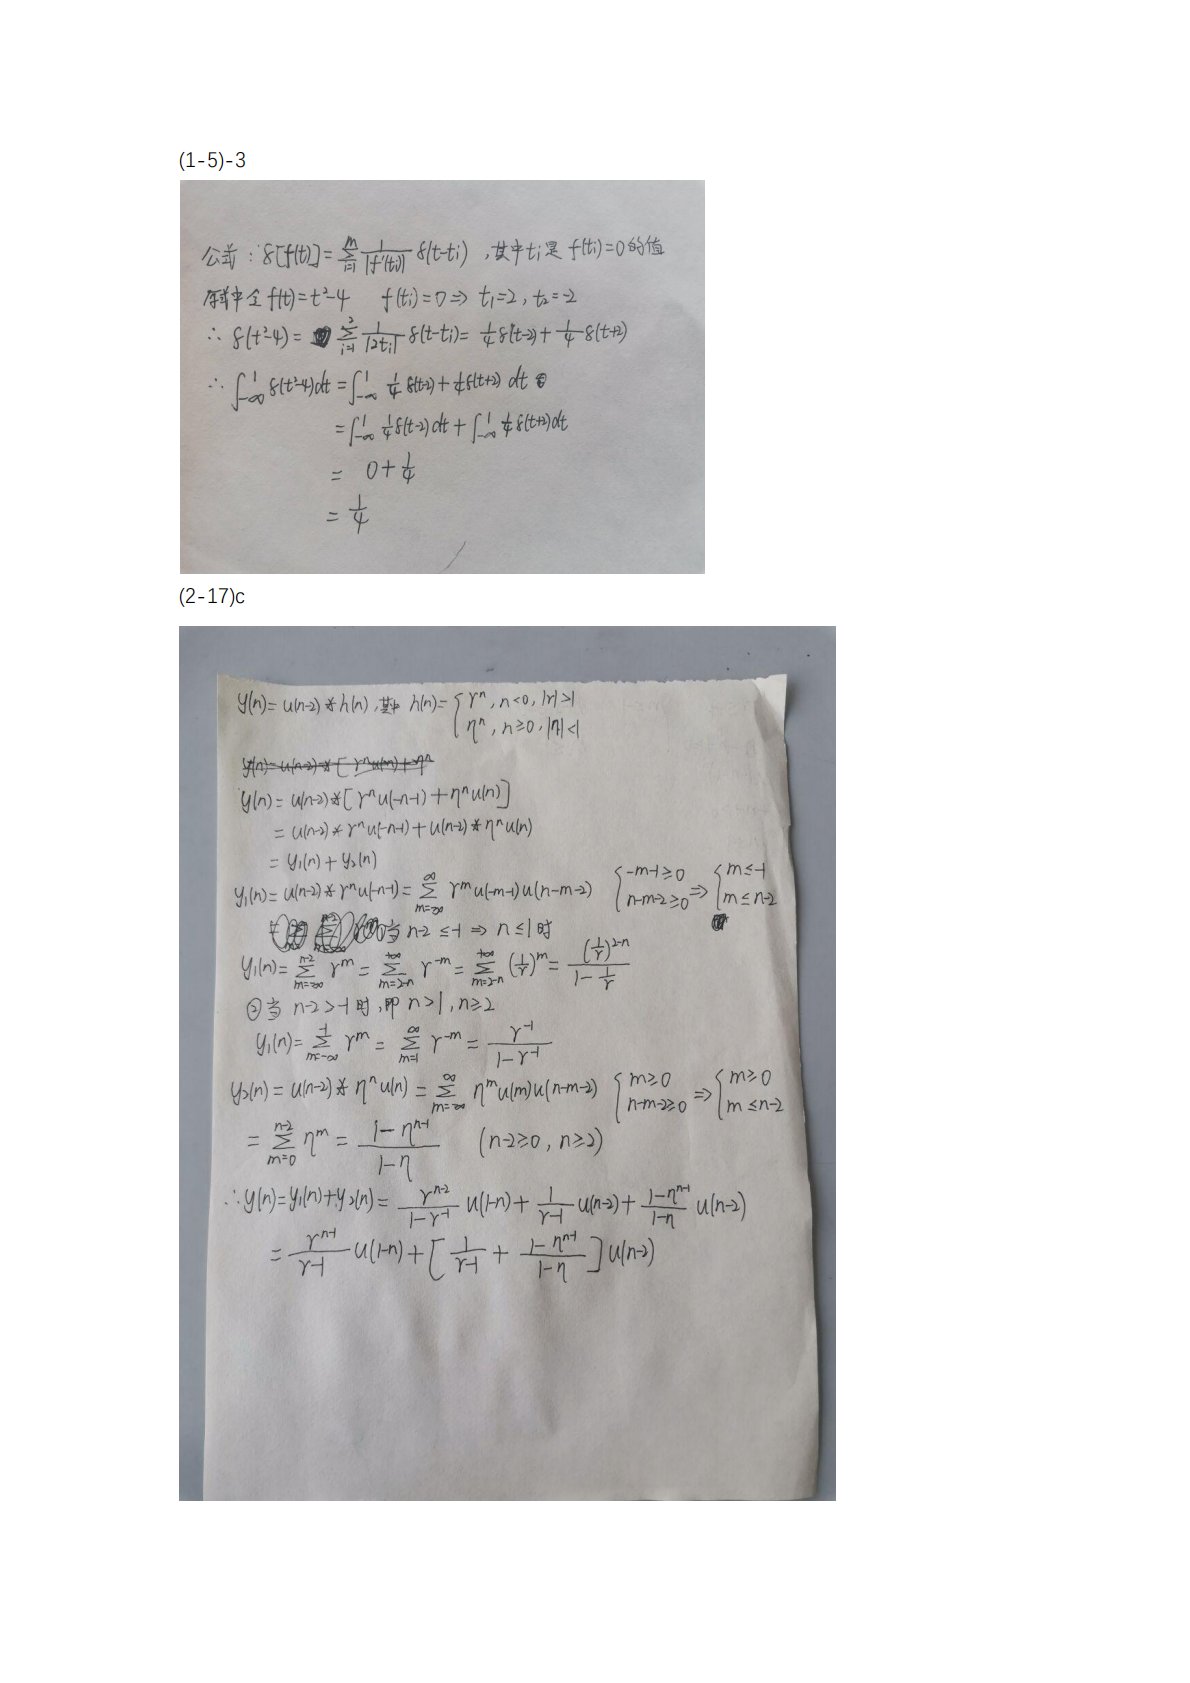 (1-5)-3
公式：δ[f(t)]=∑_{i=1}^{m} 1/|f'(ti)| δ(t-ti)，其中ti是 f(ti)=0的值
原式中令 f(t)=t²-4 f(ti)=0⇒ t₁=2, t₂=-2
∴ δ(t²-4)= ∑_{i=1}^{2} 1/|2ti| δ(t-ti)= 1/4 δ(t-2)+ 1/4 δ(t+2)
∴ ∫_{-∞}^{1} δ(t²-4)dt =∫_{-∞}^{1} 1/4 δ(t-2)+1/4 δ(t+2) dt
=∫_{-∞}^{1} 1/4 δ(t-2)dt + ∫_{-∞}^{1} 1/4 δ(t+2)dt
= 0+1/4
= 1/4
(2-17)c
y(n)= u(n-2)*h(n)，其中 h(n)= { rⁿ, n<0, |r|>1
ηⁿ, n≥0, |η|<1
y(n)= u(n-2)*[rⁿu(-n-1)+ηⁿu(n)]
= u(n-2)*rⁿu(-n-1)+u(n-2)*ηⁿu(n)
= y₁(n)+y₂(n)
y₁(n)= u(n-2)*rⁿu(-n-1)= ∑_{m=-∞}^{∞} r^m u(-m-1)u(n-m-2) { -m-1≥0, n-m-2≥0 ⇒ { m≤-1, m≤n-2
当 n-2≤-1 ⇒ n≤1时
y₁(n)= ∑_{m=-∞}^{n-2} r^m = ∑_{m=2-n}^{+∞} r^{-m} = ∑_{m=2-n}^{+∞} (1/r)^m = (1/r)^{2-n}/(1-1/r)
②当 n-2>-1时，即n>1, n≥2
y₁(n)= ∑_{m=-∞}^{-1} r^m = ∑_{m=1}^{∞} r^{-m} = r^{-1}/(1-r^{-1})
y₂(n)= u(n-2)*ηⁿu(n)= ∑_{m=-∞}^{∞} η^m u(m)u(n-m-2) { m≥0, n-m-2≥0 ⇒ { m≥0, m≤n-2
= ∑_{m=0}^{n-2} η^m = (1-η^{n-1})/(1-η) (n-2≥0, n≥2)
∴y(n)=y₁(n)+y₂(n)= r^{n-2}/(1-r^{-1}) u(1-n)+ 1/(r-1) u(n-2)+ (1-η^{n-1})/(1-η) u(n-2)
= r^{n-1}/(r-1) u(1-n)+[ 1/(r-1) + (1-η^{n-1})/(1-η) ]u(n-2)